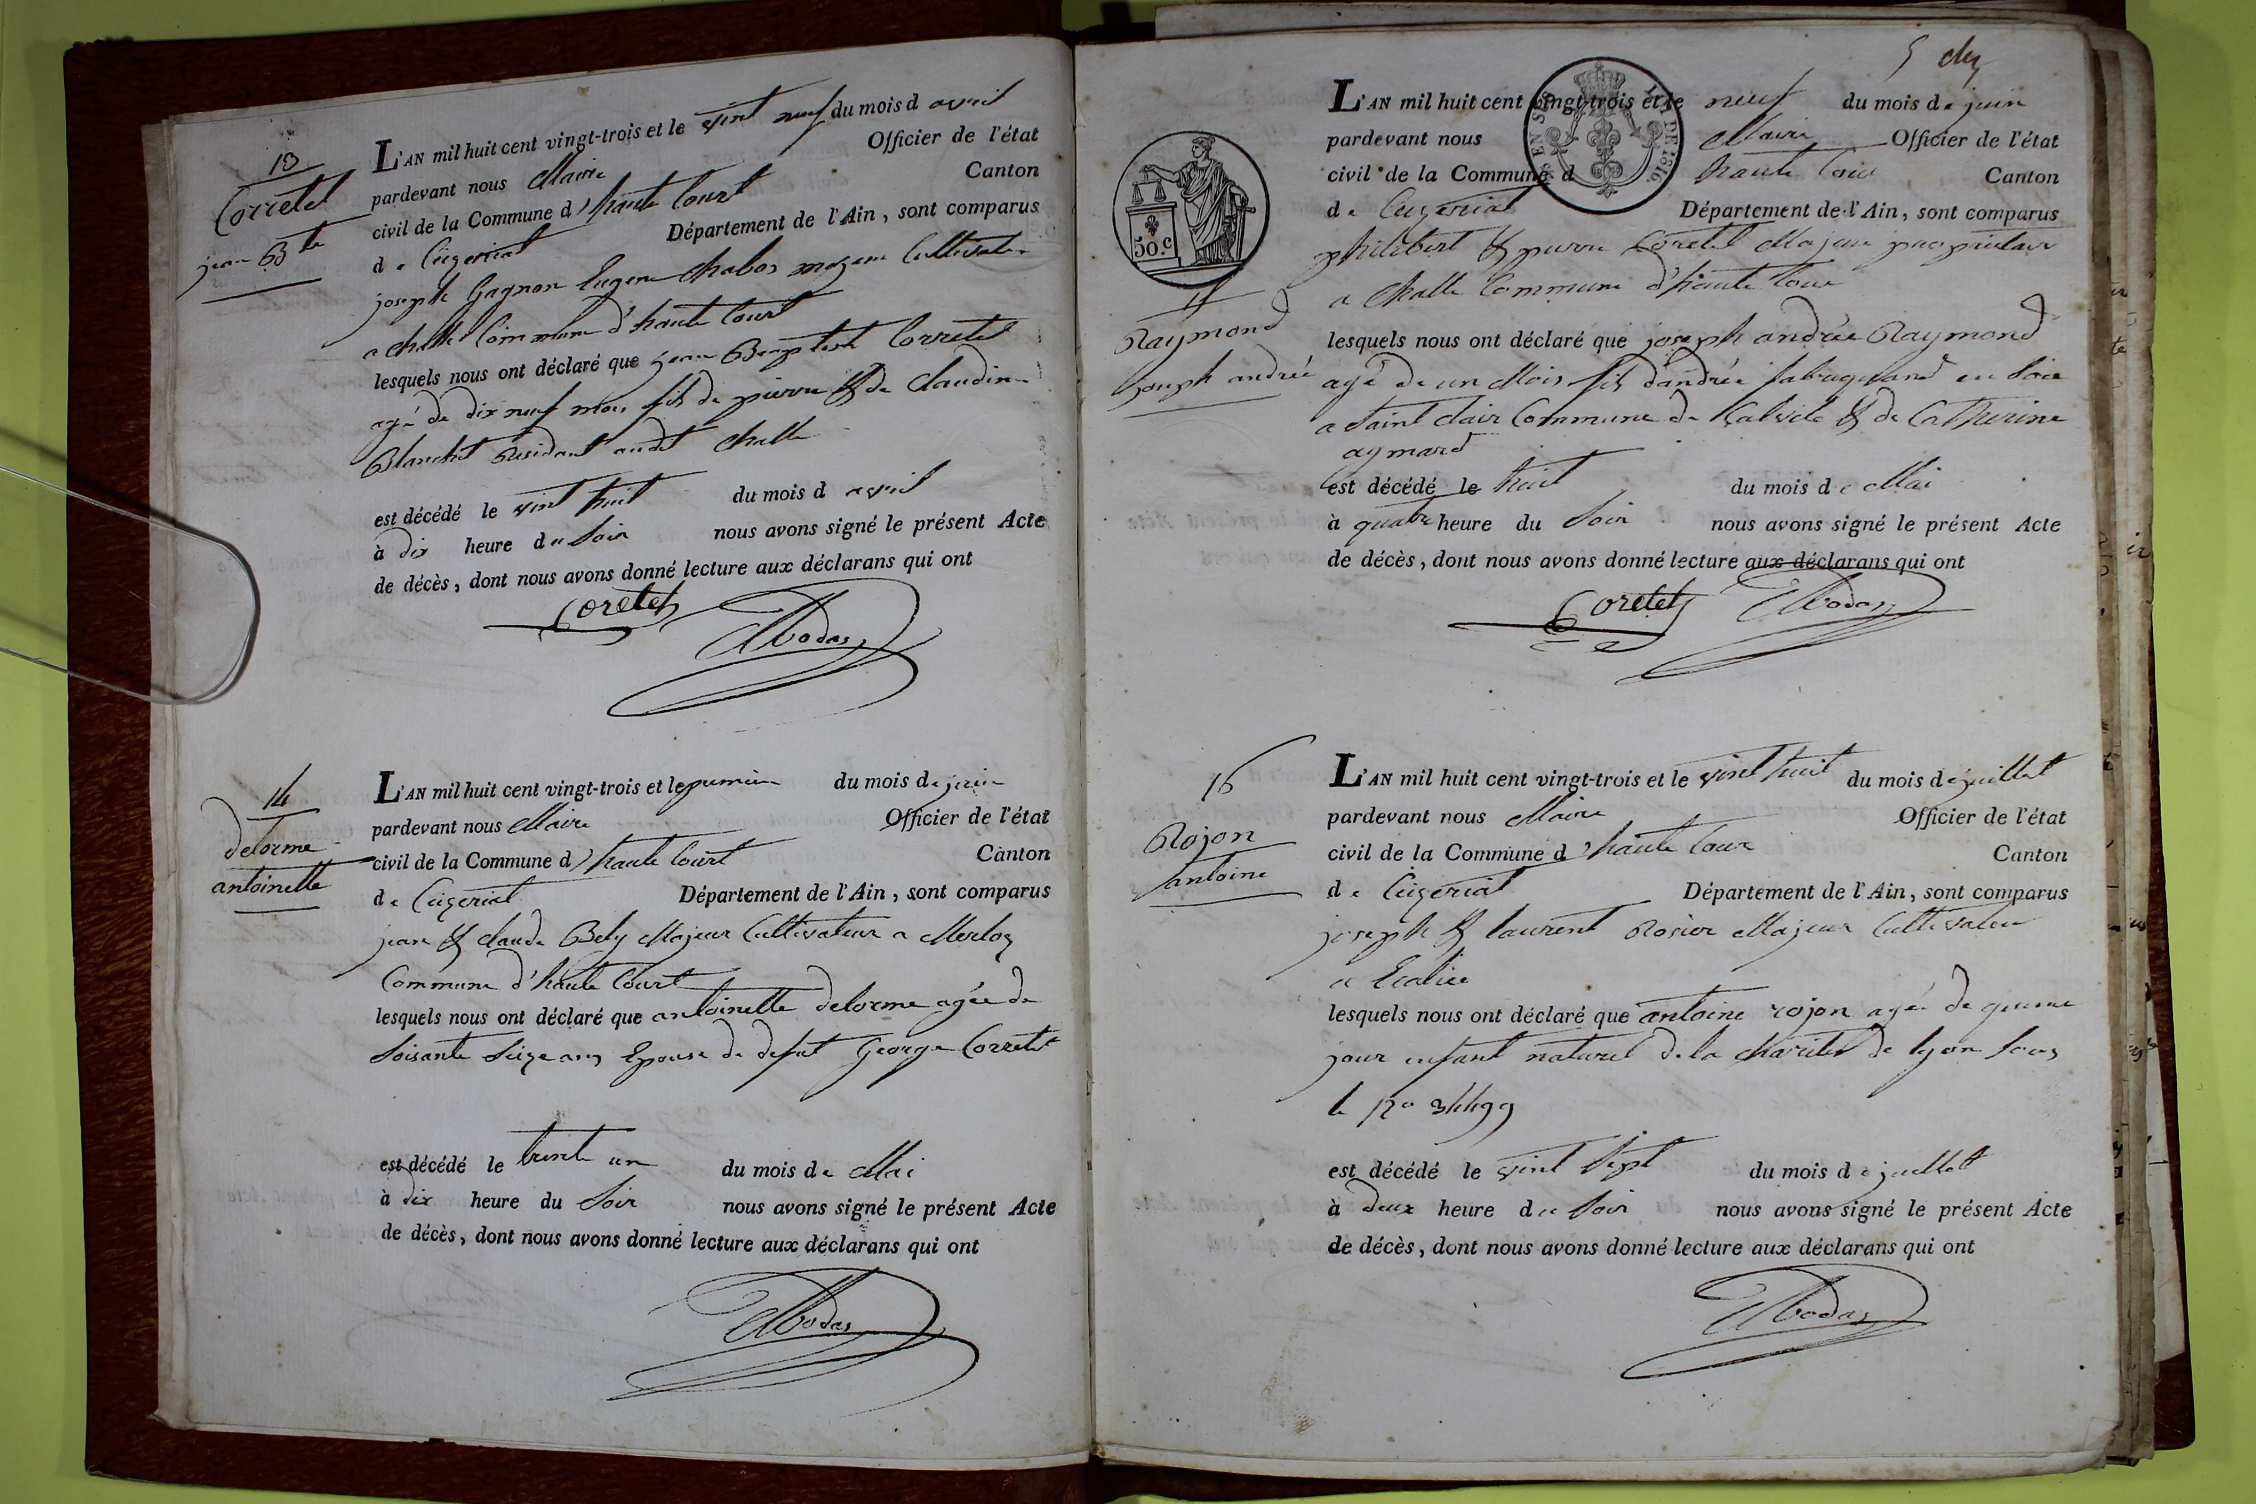 13
Corretet
jean Bte
L'AN mil huit cent vingt-trois et le vint neuf du mois d avril
pardevant nous Maire Officier de l'état
civil de la Commune d'haute Court Canton
de Ceizeriat Département de l'Ain, sont comparus
joseph Gagnon Eugene Chabos majeur Cultivateur
a Challe Commune d'haute Court
lesquels nous ont déclaré que jean Baptiste Corretet
agé de dix neuf mois fils de pierre & de Claudine
Blanchet Residant audit Challe
est décédé le vint huit du mois d avril
à dix heure du Soir nous avons signé le présent Acte
de décès, dont nous avons donné lecture aux déclarans qui ont
Coretet
14
delorme
antoinette
L'AN mil huit cent vingt-trois et le premier du mois de juin
pardevant nous Maire Officier de l'état
civil de la Commune d'haute Court Canton
de Ceizeriat Département de l'Ain, sont comparus
jean & claude Bely Majeur Cultivateur a Merloz
Commune d'haute Court
lesquels nous ont déclaré que antoinette delorme agée de
Soisante Seize ans Epouse de defut George Corretet
est décédé le trente un du mois de Mai
à dix heure du Soir nous avons signé le présent Acte
de décès, dont nous avons donné lecture aux déclarans qui ont
5
50.c
Raymond
joseph andrée
L'AN mil huit cent vingt-trois et le neuf du mois de juin
pardevant nous Maire Officier de l'état
civil de la Commune d haute Cour Canton
de Ceizeriat Département de l'Ain, sont comparus
philibert & pierre Coretet Majeur propriétaire
a Challe Commune d'haute Cour
lesquels nous ont déclaré que joseph andrée Raymond
agé de un Mois fils d'andrée fabriquand en Soie
a Saint Clair Commune de & de Catherine
aymard
est décédé le huit du mois de Mai
à quatre heure du Soir nous avons signé le présent Acte
de décès, dont nous avons donné lecture aux déclarans qui ont
Coretet
16
Rojon
antoine
L'AN mil huit cent vingt-trois et le vint huit du mois de juillet
pardevant nous Maire Officier de l'état
civil de la Commune d'haute Cour Canton
de Ceizeriat Département de l'Ain, sont comparus
joseph & laurent Rosier Majeur Cultivateur
a
lesquels nous ont déclaré que antoine rojon agé de quinse
jour enfant naturel de la Charitet de lyon Sous
le No 34499
est décédé le vint Sept du mois de juillet
à deux heure du Soir nous avons signé le présent Acte
de décès, dont nous avons donné lecture aux déclarans qui ont